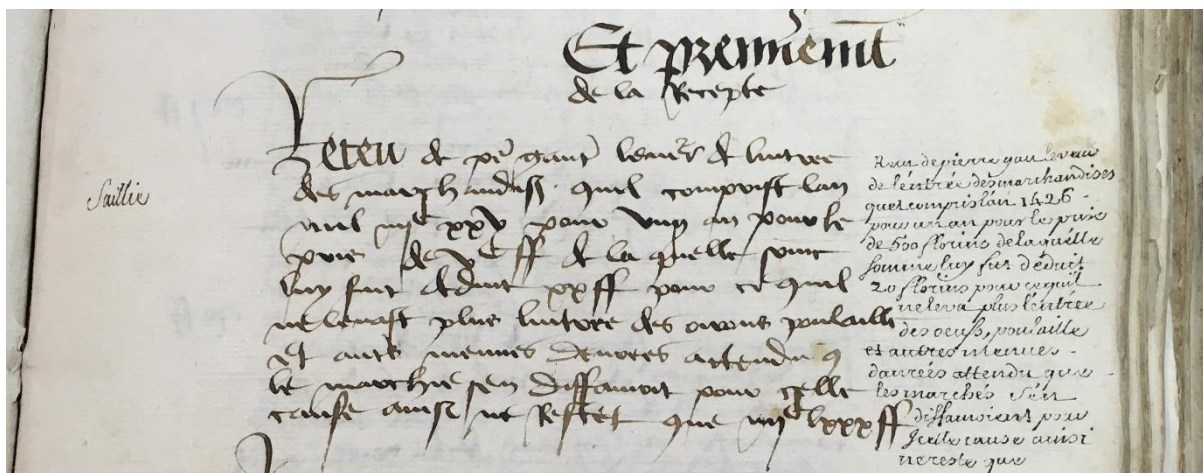 Et premierement
de la Recepte
Saillie
Receu de pe gant leveur de lintree
des marchandises quil comprist lan
mil iiijc xxv pour ung an pour le
pris de vc ff de la quelle somme
luy fut deduit xxff pour ce quil
ne levast plus lintree des owns poulaille
et autres menues denrees actendu q
le marchie sen diffamoit pour icelle
cause ainsi ne Restet que iiijc lxxxff
Receu de pierre gau leveur
de l'entrée des marchandises
quel compris l'an 1426
pour un an pour le prix
de 500 florins de laquelle
somme luy fut déduit
20 florins pour ce quil
ne leva plus l'entrée
des oeufs, poulaille
et autres menues
danrées attendu que
les marchés s'en
diffamoient pour
Jcelle cause ainsi
ne reste que